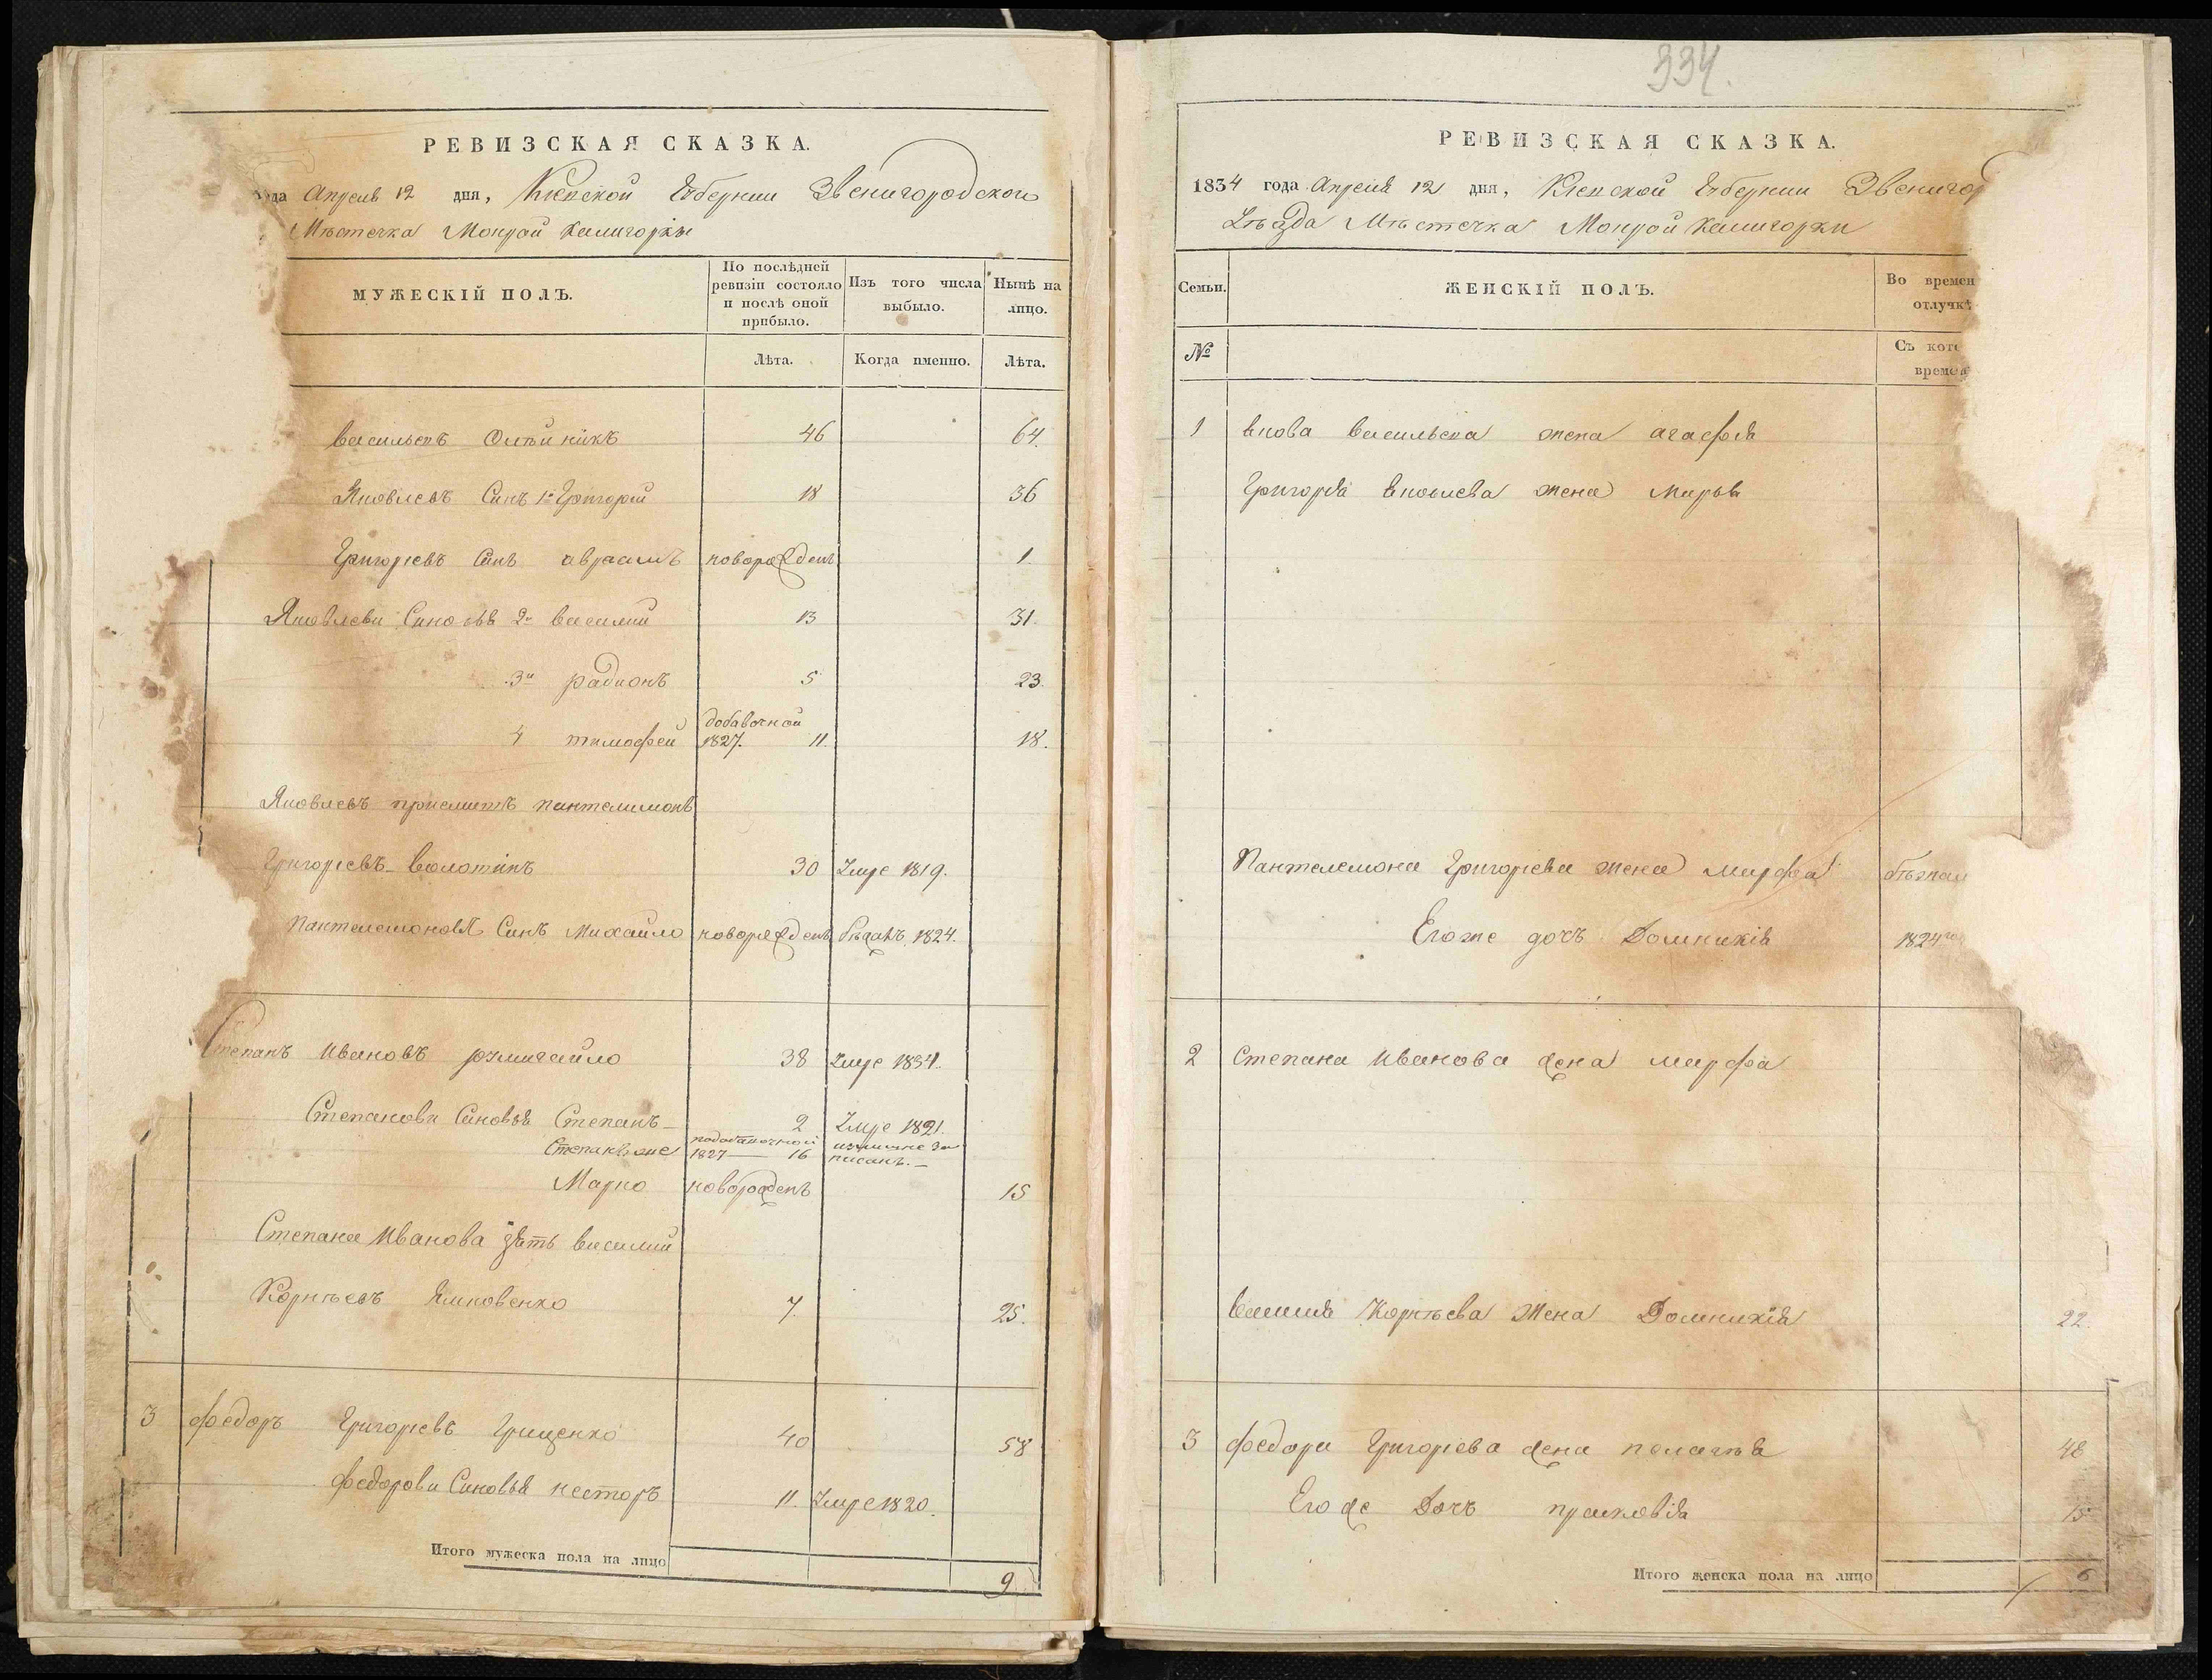 РЕВИЗСКАЯ СКАЗКА.
Апреля 12 дня, Кіевской Губерніи Звенигородского
Мѣстечка Мокрой Калигорки
МУЖЕСКІЙ ПОЛЪ.
По послѣдней ревизіи состояло и послѣ оной прибыло.
Изъ того числа выбыло.
Нынѣ на лицо.
Лѣта.
Когда именно.
Лѣта.
Васильевъ Олѣйникъ 46 64.
Яковлевъ Синъ 1й Григорій 18 36
Григоріевъ Синъ авраамъ новорожденъ 1
Яковлеви Синовья 2й василий 13 31.
3й радионъ 5 23.
4 тимофей добавочной 1827. 11. 18.
Яковлевъ приемишъ пантелимонъ
Григоріевъ 30 Умре 1819.
Пантелемоновъ Синъ Михайло новорожденъ бѣжалъ 1824.
Степанъ Ивановъ 38 Умре 1834.
Степанови Синовья Степанъ 2 Умре 1821.
Степанъ же 1827 — 16 излишне записанъ.
Марко новорожденъ 15
Степана Иванова зять василий
Корнѣевъ Яковенко 7. 25.
3 федоръ Григоріевъ Грищенко 40 58
федорови Синовья несторъ 11. Умре 1820.
Итого мужеска пола на лицо 9
334.
РЕВИЗСКАЯ СКАЗКА.
1834 года Апреля 12 дня, Кіевской Губерніи Звенигор
Уѣзда Мѣстечка Мокрой Калигорки
Семьи.
ЖЕНСКІЙ ПОЛЪ.
Во времен отлучкѣ
№
Съ кото времен
1 Якова Васильева жена агафія
Григорія Яковлева жена Марья
Пантелемона Григоріева жена марфа
Егоже дочъ Домникія 1824
2 Степана Иванова жена марфа
василия Корнѣева жена Домникія 22.
3 федора Григоріева жена пелагѣя 48
Его же Дочъ прасковія 15
Итого женска пола на лицо 6